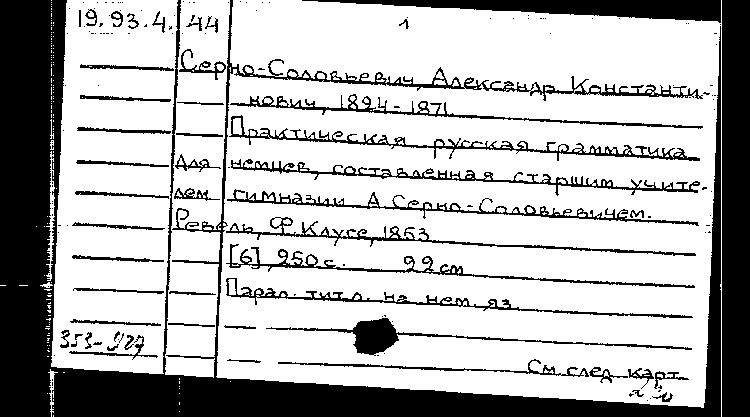 19.93.4.44 1
Серно-Соловьевич, Александр Константи-
нович, 1824-1871.
Практическая русская грамматика
для немцев, составленная старшим учите-
лем гимназии А. Серно-Соловьевичем.
Ревель, Ф. Клуге, 1853.
[6], 250 с. 22 см
Парал. титл. на нем. яз.
353-
См. след. карт.